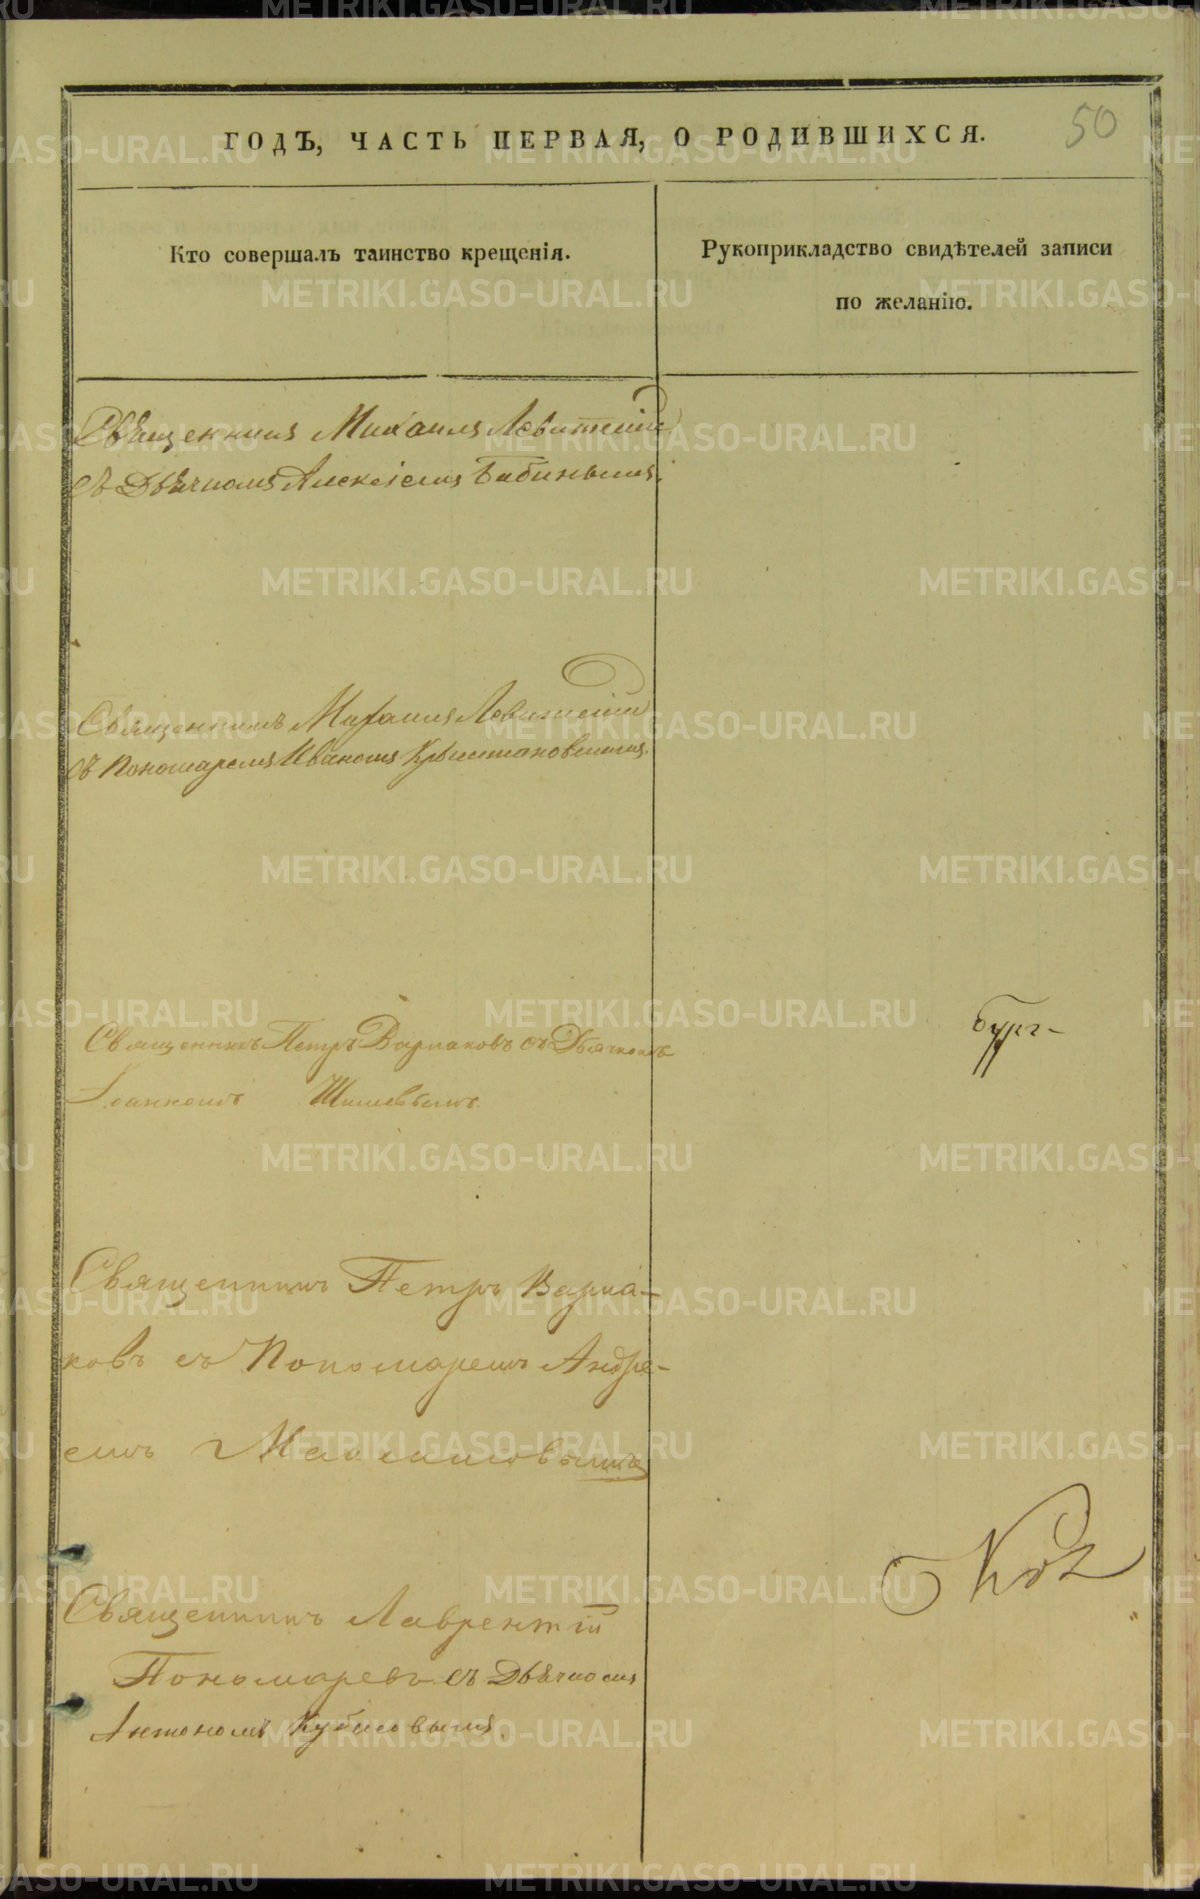 50
ГОДЪ, ЧАСТЬ ПЕРВАЯ, О РОДИВШИХСЯ.
Кто совершалъ таинство крещенія.
Рукоприкладство свидѣтелей записи
по желанію.
Священникъ Михаилъ Левитскій
съ Дьячкомъ Алексіемъ Бабинымъ.
Священникъ Михаилъ Левитскій
съ Пономаремъ Иваномъ
Священникъ Петръ Варлаковъ съ Дьячкомъ
Іоанномъ
Бург-
Священникъ Петръ Варла-
ковъ съ Пономаремъ Андре-
емъ
Священникъ Лаврентій
Пономаревъ съ Дьячкомъ
Антономъ
METRIKI.GASO-URAL.RU